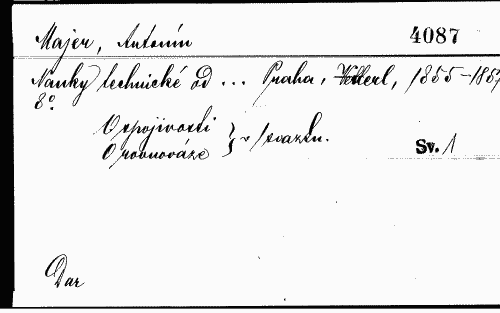 Majer, Antonín 4087
Nauky technické od ... Praha, 1855-1857
8o.
O spojivosti
O rovnováze } v 1 svazku.
Sv. 1
Dar